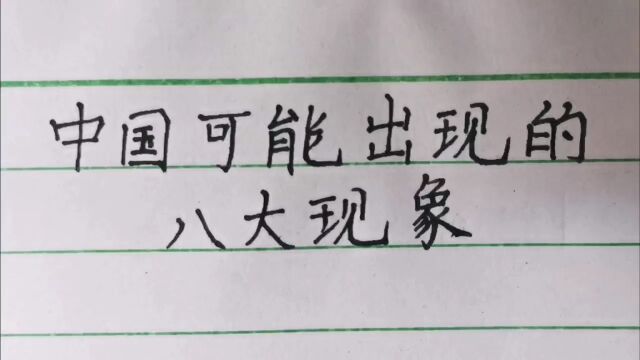 中国可能出现的
八大现象